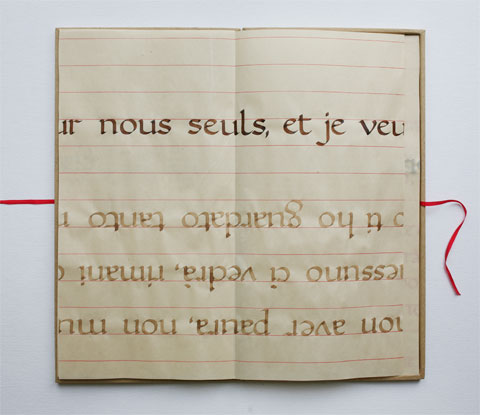 ur nous seuls, et je veu
non aver paura, non mu
essuno ci vedrà, rimani c
o ti ho guardato tanto